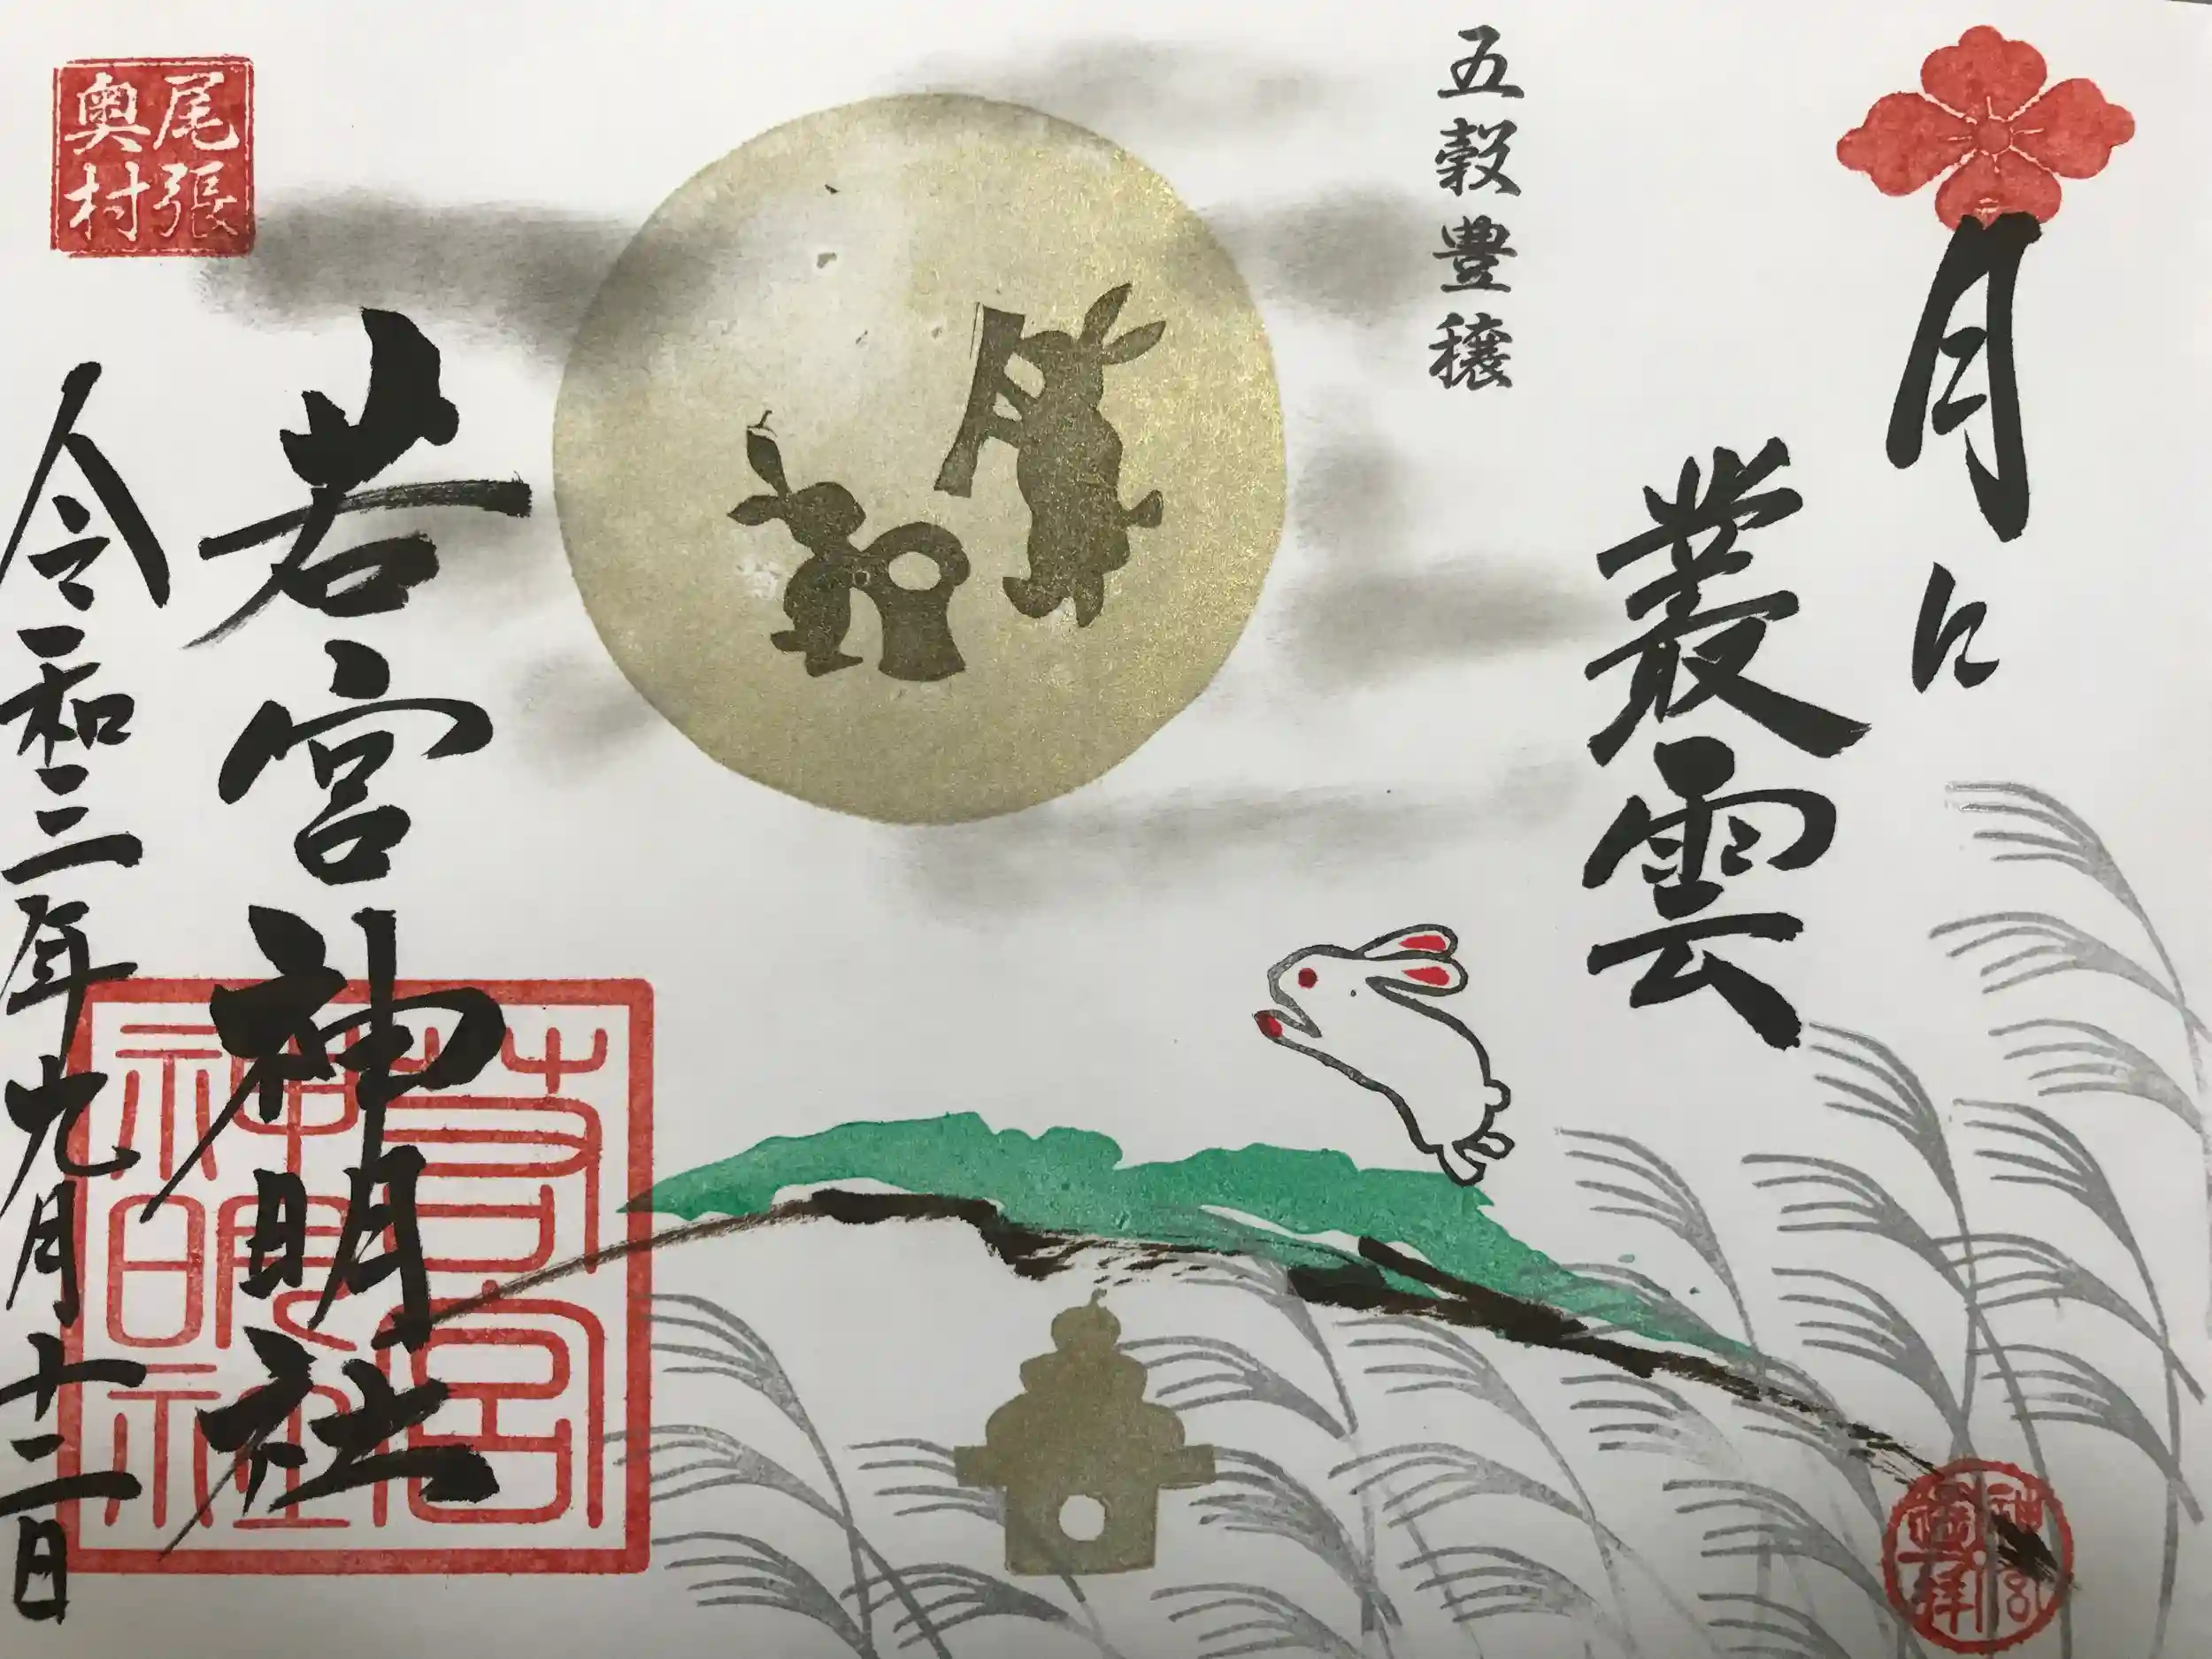 月に
叢雲
五穀豊穣
尾張
奥村
若宮神明社
令和三年九月十二日
若宮
神明社